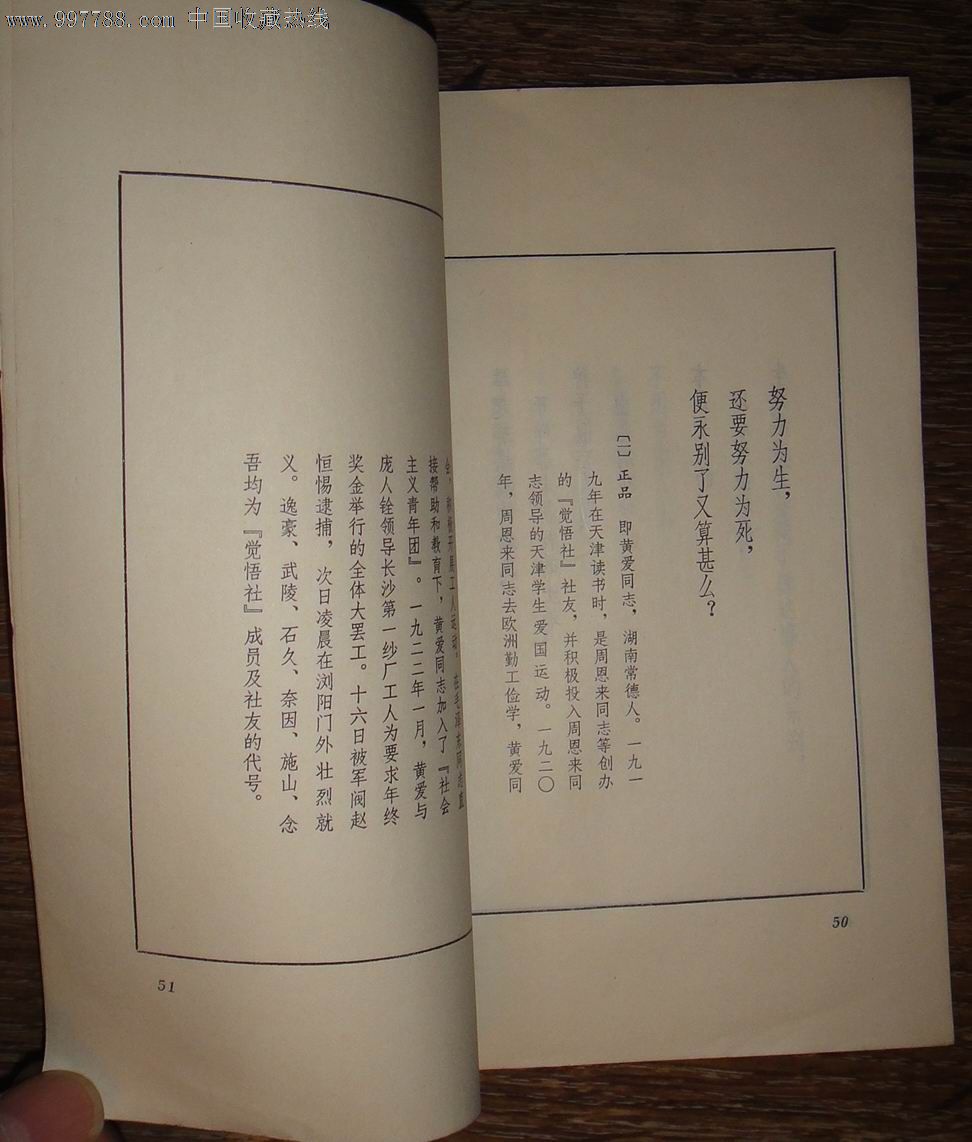 www.997788.com 中国收藏热线
努力为生，
还要努力为死，
便永别了又算甚么？
〔一〕 正品 即黄爱同志，湖南常德人。一九一
九年在天津读书时，是周恩来同志等创办
的『觉悟社』社友，并积极投入周恩来同
志领导的天津学生爱国运动。一九二〇
年，周恩来同志去欧洲勤工俭学，黄爱同
50
会，积极开展工人运动。在毛泽东同志直
接帮助和教育下，黄爱同志加入了『社会
主义青年团』。一九二二年一月，黄爱与
庞人铨领导长沙第一纱厂工人为要求年终
奖金举行的全体大罢工。十六日被军阀赵
恒惕逮捕，次日凌晨在浏阳门外壮烈就
义。逸豪、武陵、石久、奈因、施山、念
吾均为『觉悟社』成员及社友的代号。
51